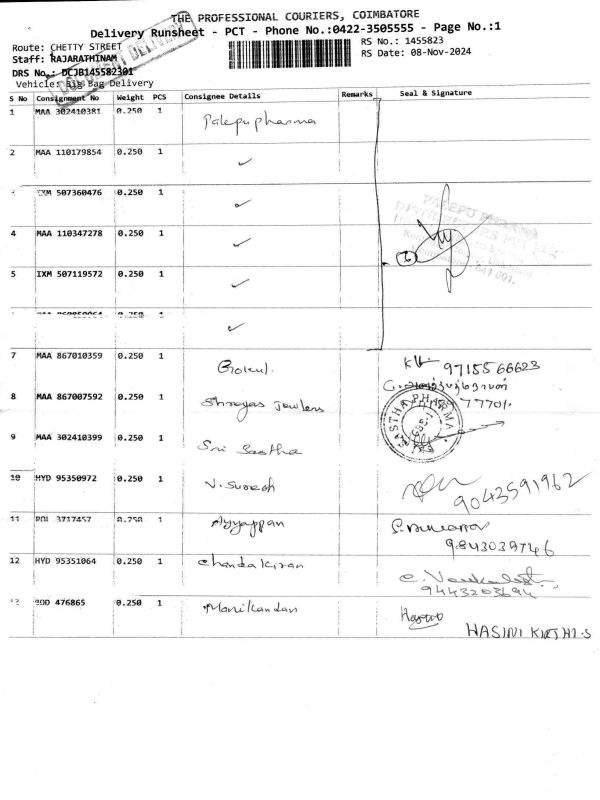 THE PROFESSIONAL COURIERS, COIMBATORE
Delivery Runsheet - PCT - Phone No.:0422-3505555 - Page No.:1
Route: CHETTY STREET
RS No.: 1455823
Staff: RAJARATHINAM
RS Date: 08-Nov-2024
DRS No.: DCJB145582301
DOCUMENT DELIVERY
Vehicle: Big Bag Delivery
S No Consignment No Weight PCS Consignee Details Remarks Seal & Signature
1 MAA 302410381 0.250 1 Palepu pharma
2 MAA 110179854 0.250 1 ✓
IXM 507360476 0.250 1 ✓
PALEPU PHARMA
DISTRIBUTORS PVT LTD.
4 MAA 110347278 0.250 1 ✓
6
641 001.
5 IXM 507119572 0.250 1 ✓
0.250 1 ✓
7 MAA 867010359 0.250 1 Gokul
9715566623
8 MAA 867007592 0.250 1 Shreyas Jewlers
77701
SASTHA PHARMA
9 MAA 302410399 0.250 1 Sri Sastha
10 HYD 95350972 0.250 1 V. Suresh
9043591962
11 POL 3717457 0.250 1 Ayyappan
9843039746
12 HYD 95351064 0.250 1 Chanda kiran
9443203694
13 476865 0.250 1 Manikandan
HASINI KIRTHI.S